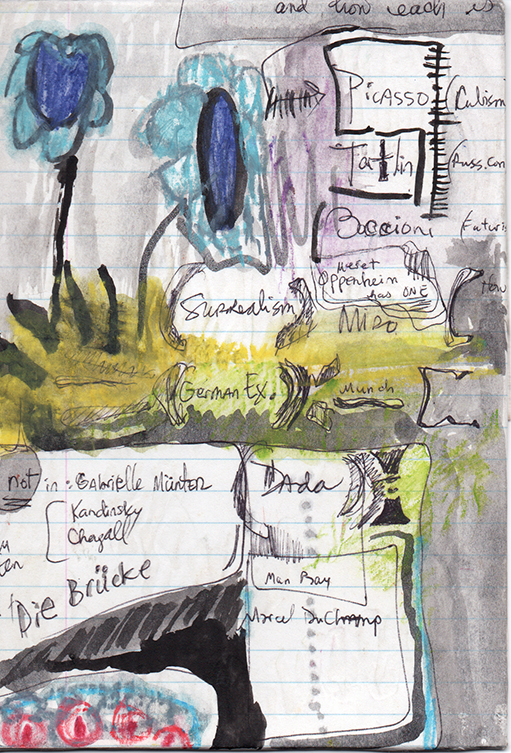 and how each is
Picasso (Cubism
Tatlin (Russ. Con
Boccioni Futuris
Meret
Oppenheim
has ONE
Surrealism
Miro
German Ex.
Munch
not in: GABRIELLE MÜNTER
Kandinsky
Chagall
Die Brücke
Dada
Man Ray
Marcel DuChamp